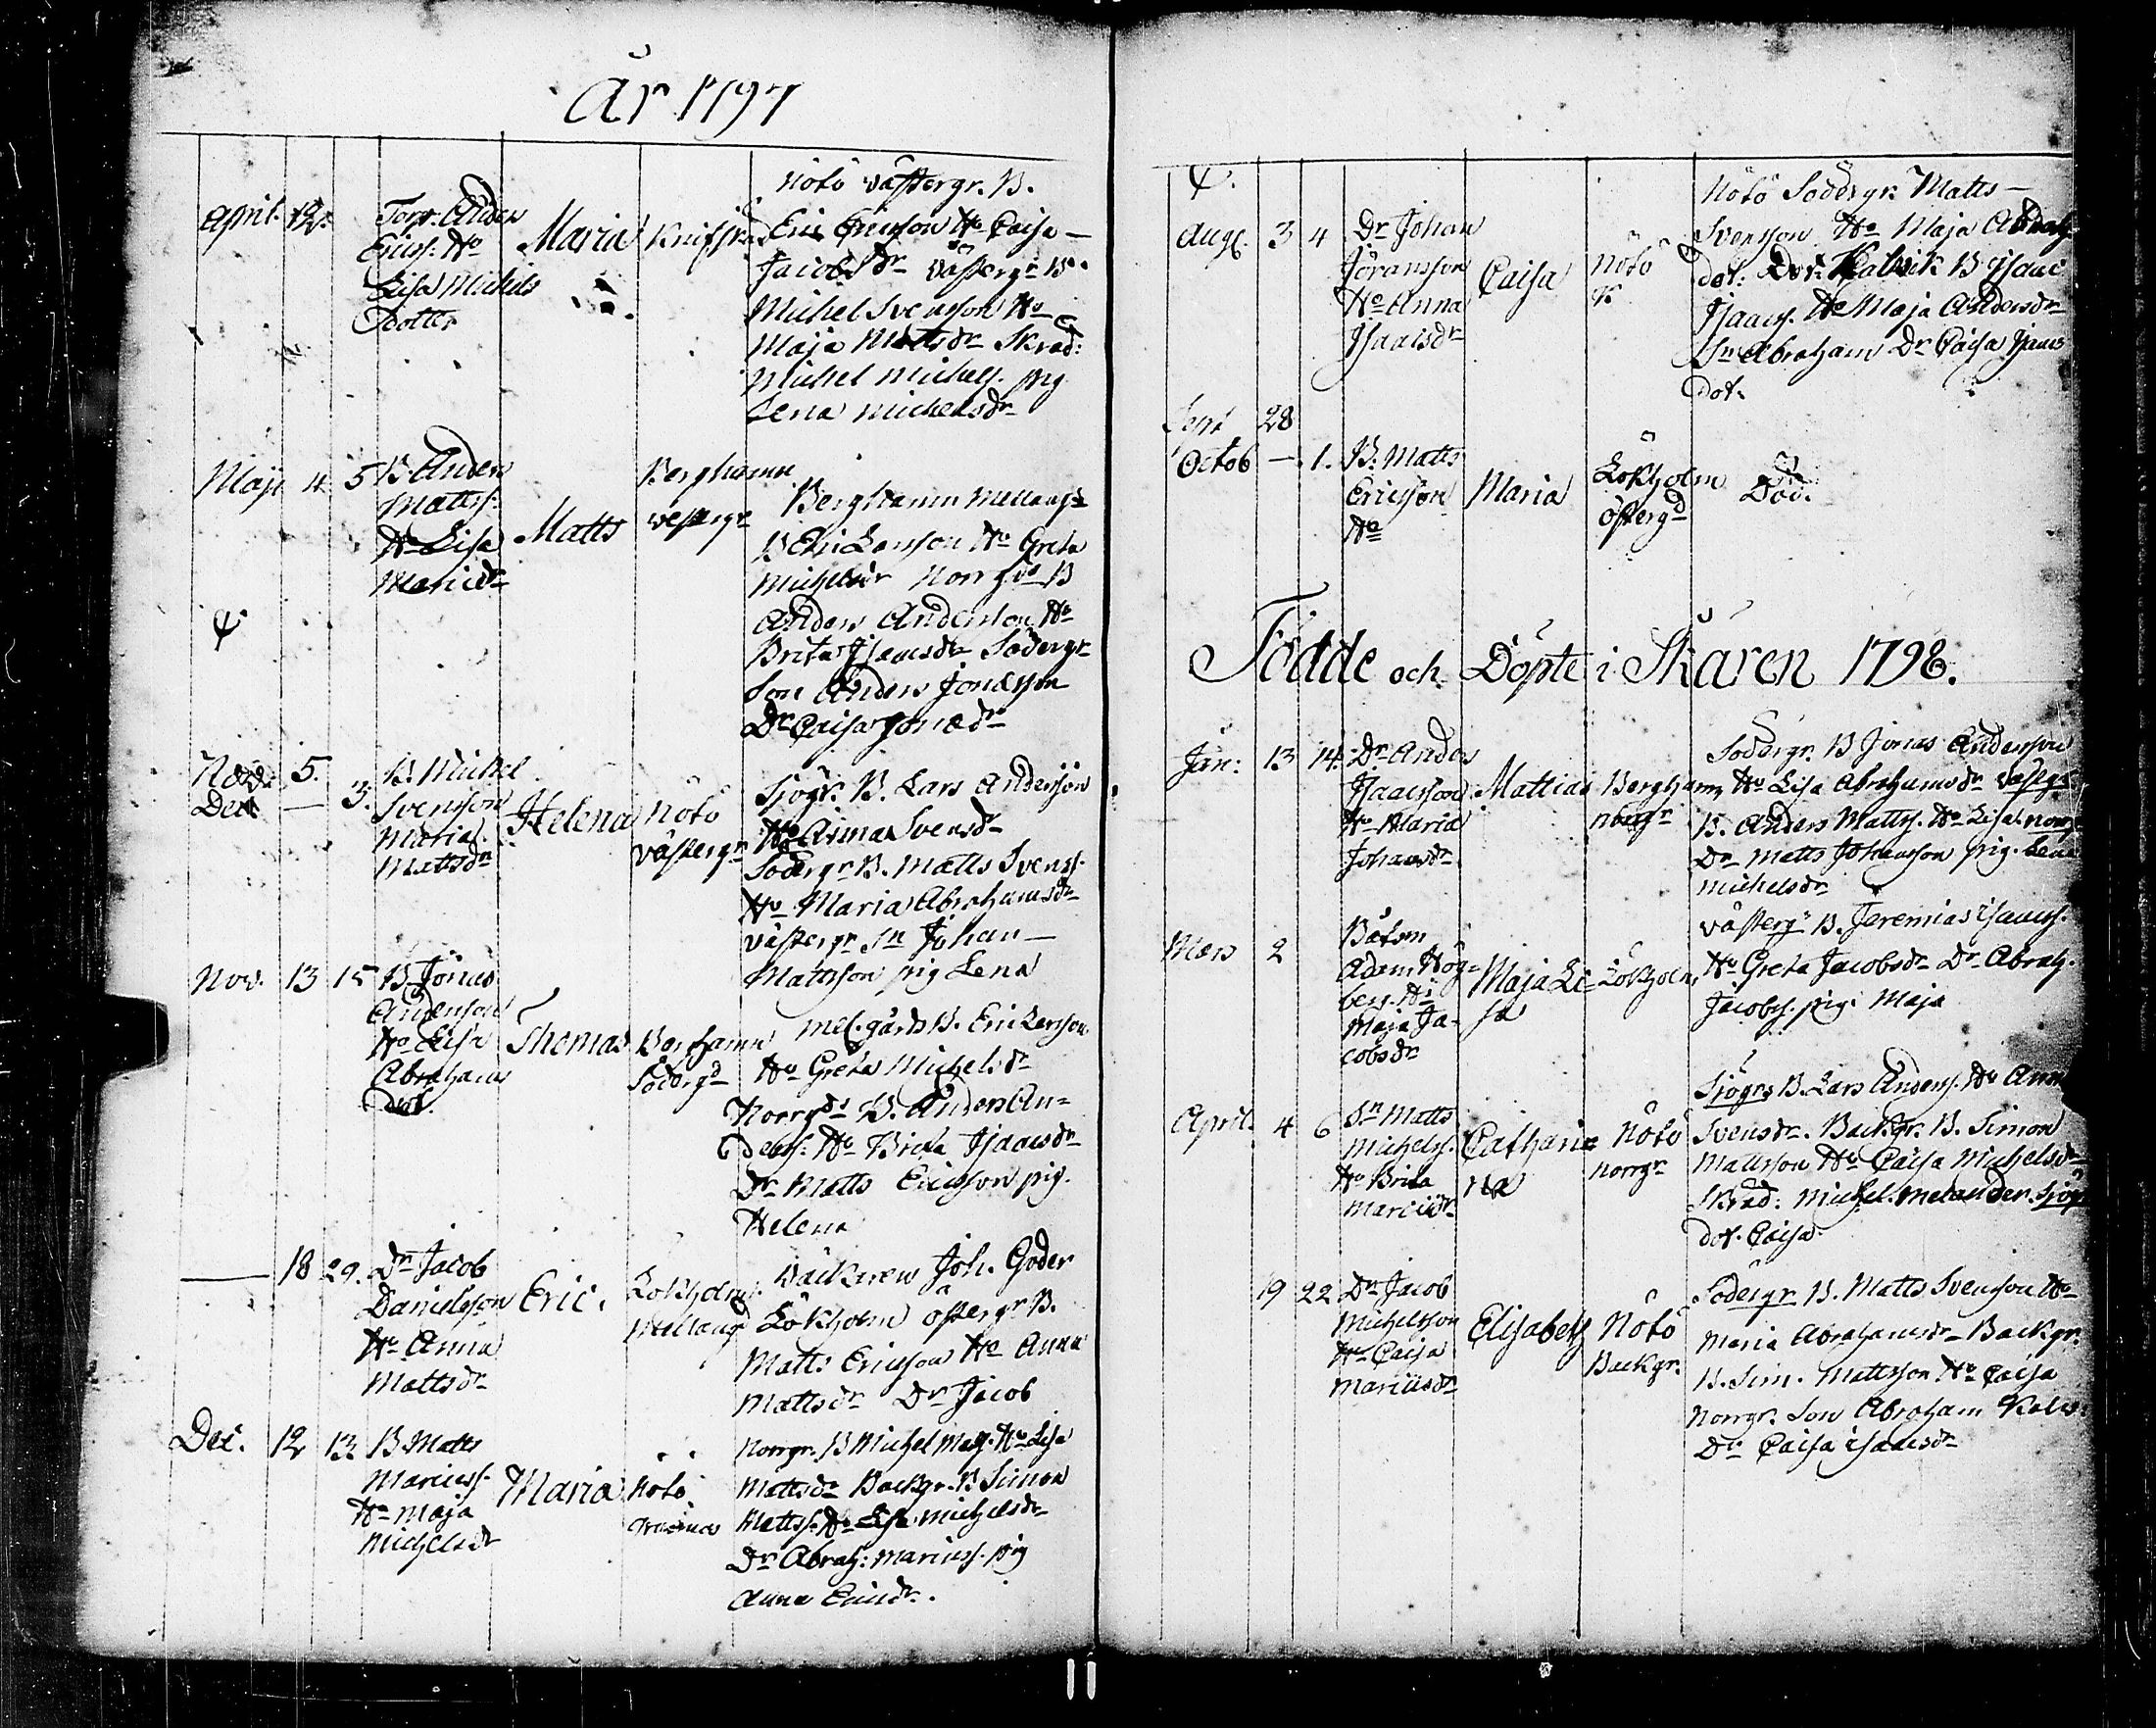 År 1797
April. 12.
Torp. Anders
Ericss. Hu
Lisa Michels
dotter
Maria
Nötö västergr. B.
Eric Ericsson Hu Caisa
Jacobs dr västergr B.
Michel Svensson Hu
Maja Mattsdr Skräd:
Michel Michelss. pig
Lena Michelsdr
Maji 4 5
B. Anders
Matts:
Hu Lisa
Matts
Berghamn
westergr
Berghamn Mellangr
B Eric Larsson Hu Greta
Michelsdr Norrgds B
Anders Andersson Hu
Brita Isaacsdr Södergr
Son Anders Jonasson
Dr Caisa Jonædr
Nov: 5.
Dec — 3.
B. Michel
Svensson
Maria
Mattsdr
Helena
Nötö
västergr
Sjögr. B. Lars Andersson
Hu Anna Svensdr
Södergr B. Matts Svenss.
Hu Maria Abrahamsdr
västergr Sn Johan —
Mattsson pig Lena
Nov. 13 15
B. Jonas
Andersson
Hu Lisa
Abrahams
dot.
Thomas
Berghamn
Södergd
Mel. gårds B. Eric Larsson
Hu Greta Michelsdr
Norrgds B. Anders An-
derss: Hu Brita Isaacsdr
Dr Matts Ericsson pig.
Helena
— 18 29.
Dr Jacob
Danielsson
Hu Anna
Mattsdr
Eric.
Lökholm
Mellangd
Joh. Goder
Lökholm östergr B.
Matts Ericsson Hu Anna
Mattsdr Dr Jacob
Dec. 12 13
B. Matts
Mariuss.
Hu Maja
Michelsdr
Maria
Nötö
Norrgr. B Michel Matts. Hu Lisa
Mattsdr Backgr. B Simon
Mattss: Hu Michelsdr
Dr Abrah: Mariuss. pig
Anna Ericsdr.
Aug. 3 4
Dr Johan
Jöransson
Hu Anna
Isaacsdr
Caisa
Nötö
K
Nötö Södergr. Matts —
Svensson Hu Maja Abrah
dot: B Isaac
Isaacss. Hu Maja Andersdr
Sn Abraham Dr Caisa Isaacs
dot.
Sept 28
Octob — 1.
B. Matts
Ericsson
Hu
Maria
Lökholm
östergd
Död.
Födde och Döpte i Skären 1798.
Jan: 13 14
Dr Anders
Isaacsson
Hu Maria
Johansdr
Mattias
Berghamn
norrgr
Södergr. B Jonas Andersson
Hu Lisa Abrahamsdr västgr
B. Anders Matts. Hu Lisa norrg
Dr Matts Johansson pig. Lena
Michelsdr
Mars 2
Båtsm
Adam Hög-
berg. Hu
Maja Ja-
cobsdr
Maja Li-
sa
Lökholm
västerg B. Jeremias Isaacss.
Hu Greta Jacobsdr Dr Abrah.
Jacobss. pig. Maja
April. 4 6
Sn Matts
Michelss.
Hu Brita
Mariidr
Cathari-
na
Nötö
norrgr
Sjögrs B. Lars Anderss. Hu Anna
Svensdr. Backgr. B. Simon
Mattsson Hu Caisa Michelsdr
Skräd: Michel Melander Sjög
dot. Caisa
19 22
Dr Jacob
Michelsson
Hu Caisa
Mariisdr
Elisabeth
Nötö
Backgr.
Södergr. B. Matts Svensson Hu
Maria Abrahamsdr Backgr.
B. Sim. Mattsson Hu Caisa
Norrgr. Son Abraham
Dr Caisa Isaacsdr